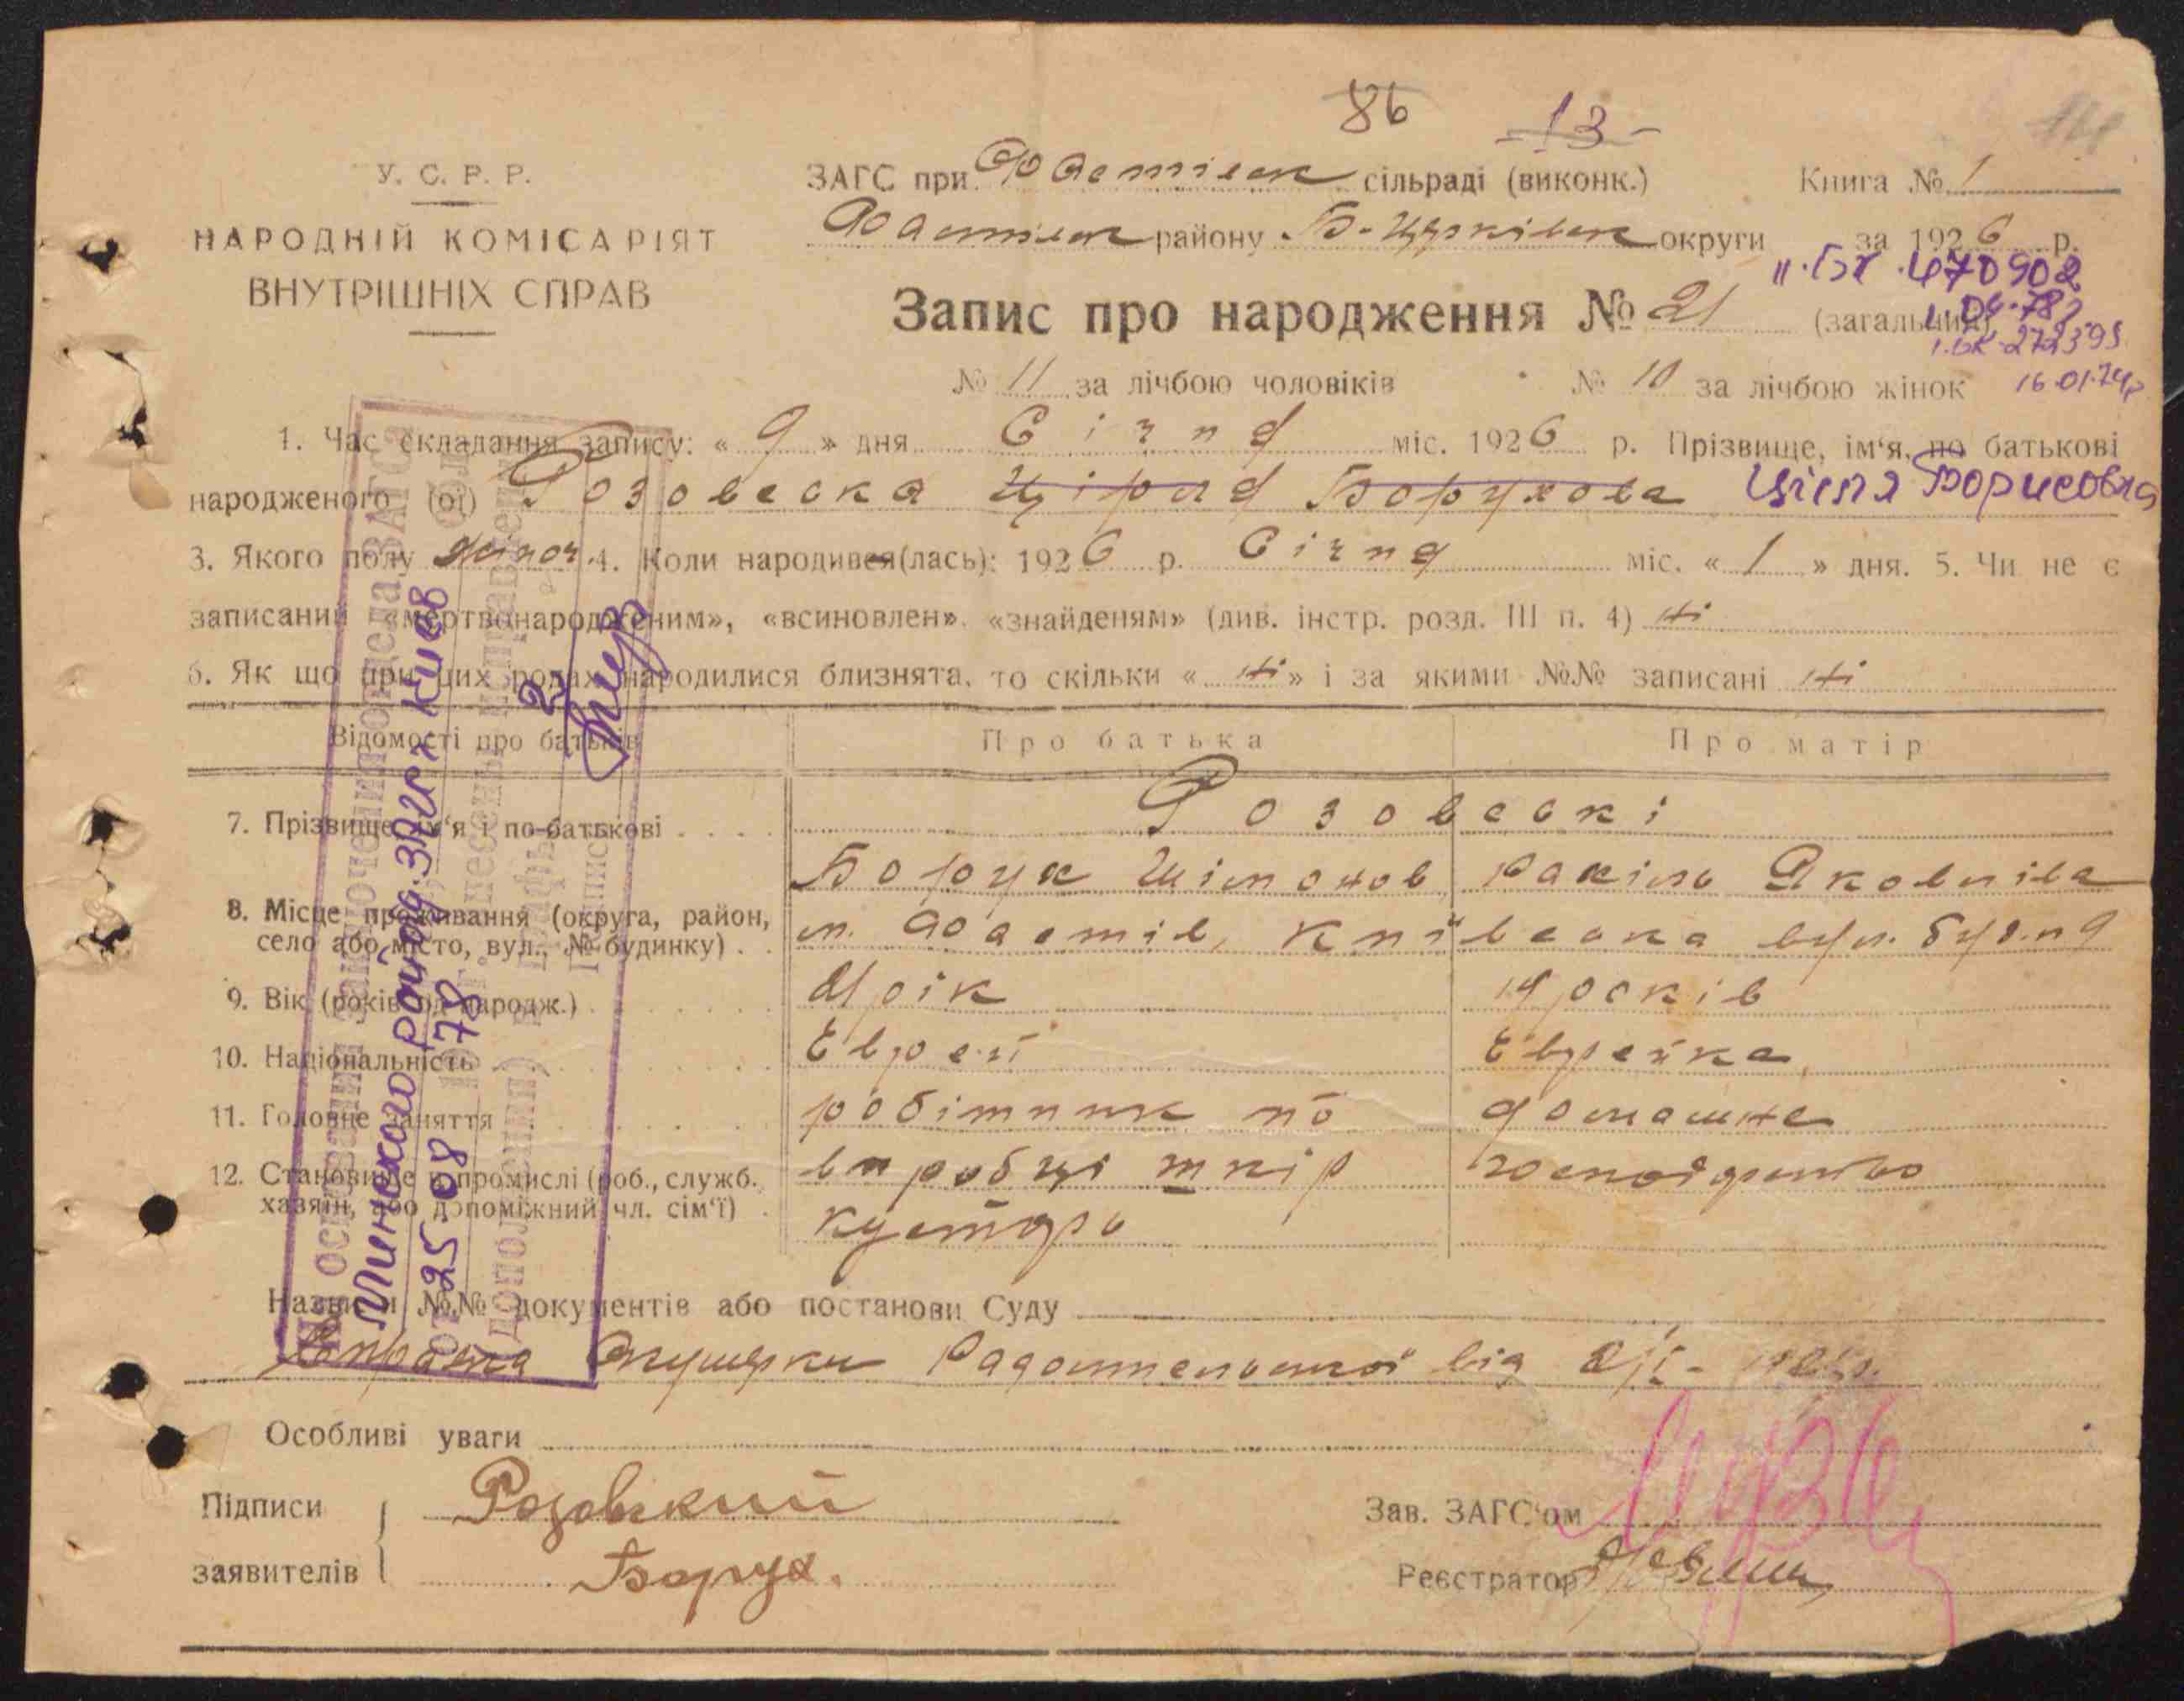 86 -13-
У. С. Р. Р.
НАРОДНІЙ КОМІСАРІЯТ
ВНУТРІШНІХ СПРАВ
ЗАГС при Фастівськ сільраді (виконк.) Книга № 1
Фастівськ району Б-Церківськ округи за 1926 р.
470902
Запис про народження № 21 (загальний)
272395
№ 11 за лічбою чоловіків № 10 за лічбою жінок 16.01.74р
1. Час складання запису: « 9 » дня Січня міс. 1926 р. Прізвище, ім'я, по батькові
народженого (ої) Розовська Ціпля Борухова Ціля Борисовна
3. Якого полу жіноч. 4. Коли народився(лась): 1926 р. Січня міс. « 1 » дня. 5. Чи не є
записаний «мертвонародженим», «всиновлен», «знайденям» (див. інстр. розд. III п. 4) Ні
6. Як що при цих родах народилися близнята, то скільки « Ні » і за якими №№ записані Ні
Відомості про батьків Про батька Про матір
7. Прізвище, ім'я і по-батькові Розовські
Борух Шімонов Рахіль Яковлівна
8. Місце проживання (округа, район,
село або місто, вул., № будинку) м. Фастів, Київська вул. буд. № 9
9. Вік (років од народж.) 21 рік 19 років
10. Національність Еврей Еврейка
11. Головне заняття робітник по домашнє
12. Становище в промислі (роб., служб.
хазяїн, або допоміжний чл. сім'ї) виробці шкір господарство
кустарь
Назви и №№ документів або постанови Суду
Справка Окушерки від
Особливі уваги
Підписи Розовский
заявителів Борух.
Зав. ЗАГС'ом
Реєстратор
На основании заключения отдела ЗАГСа
Минского рай. отд. ЗАГСа г. Киев
от 25.08 1978 г. внесены исправления
(дополнения) в графы 2
Подпись